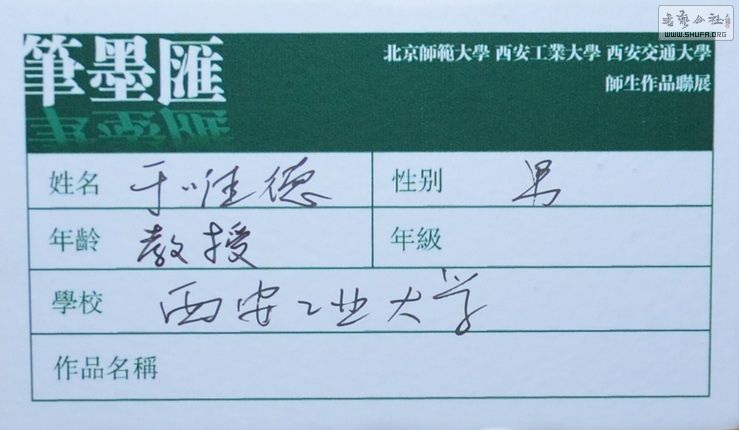 书艺公社
WWW.SHUFA.ORG
筆墨匯
北京師範大學 西安工業大學 西安交通大學
師生作品聯展
姓名 于唯德 性別 男
年齡 教授 年級
學校 西安工业大学
作品名稱